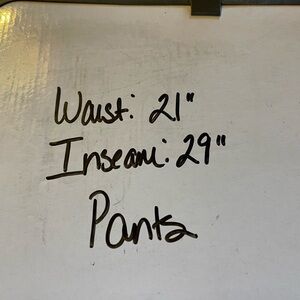 Waist: 21"
Inseam: 29"
Pants